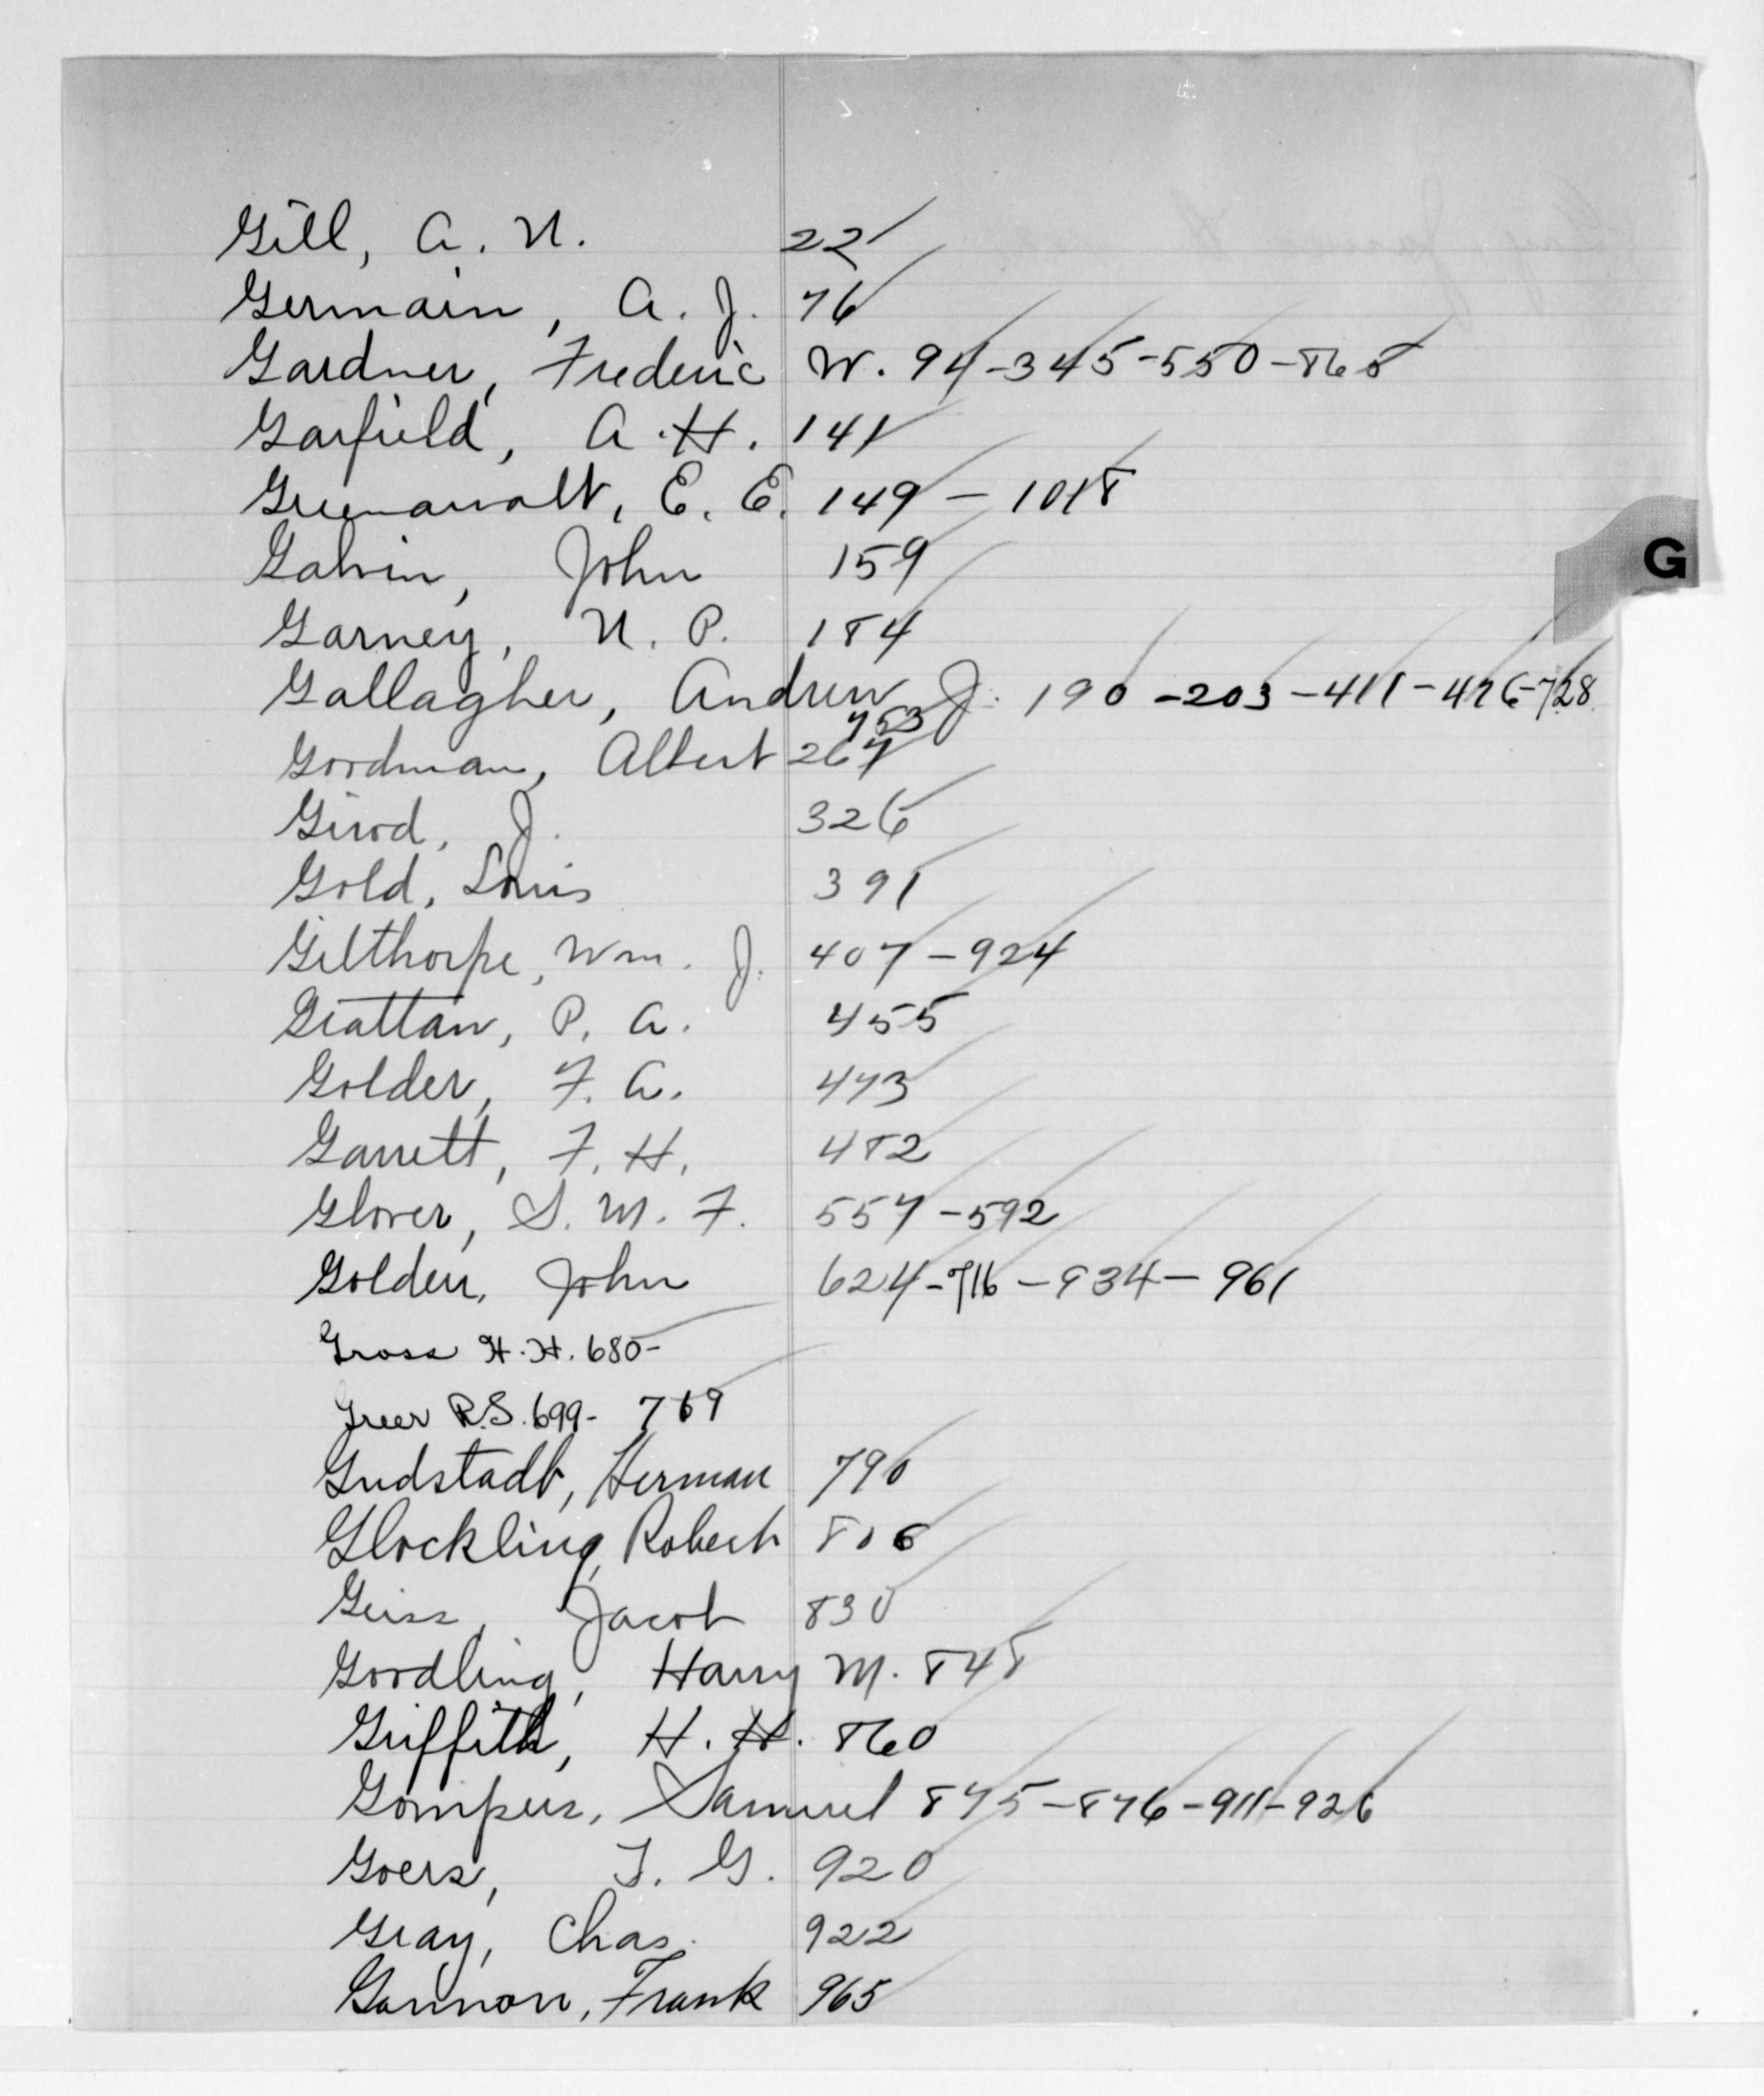 Gill, A. N. 22
Germain, A. J. 76
Gardner, Frederic W. 94-345-550-868
Garfield, A. H. 141
Greenawalt, E. E. 149 - 1018
Galvin, John 159
G
Garney, N. P. 184
Gallagher, Andrew J. 190 -203 -411 -476-728
753
Goodman, Albert 267
Girod, J. 326
Gold, Louis 391
Gilthorpe, Wm. J. 407 -924
Grattan, P. A. 455
Golder, F. A. 473
Garrett, F. H. 482
Glover, S. M. F. 557 -592
Golden, John 624-716 -934 - 961
Gross H. H. 680-
Greer R.S. 699- 769
Gudstadt, Herman 790
Glockling, Robert 806
Geiss, Jacob 830
Goodling, Harry M. 848
Griffith, H. H. 860
Gompers, Samuel 875 -876 -911-926
Goers, T. G. 920
Gray, Chas. 922
Gannon, Frank 965